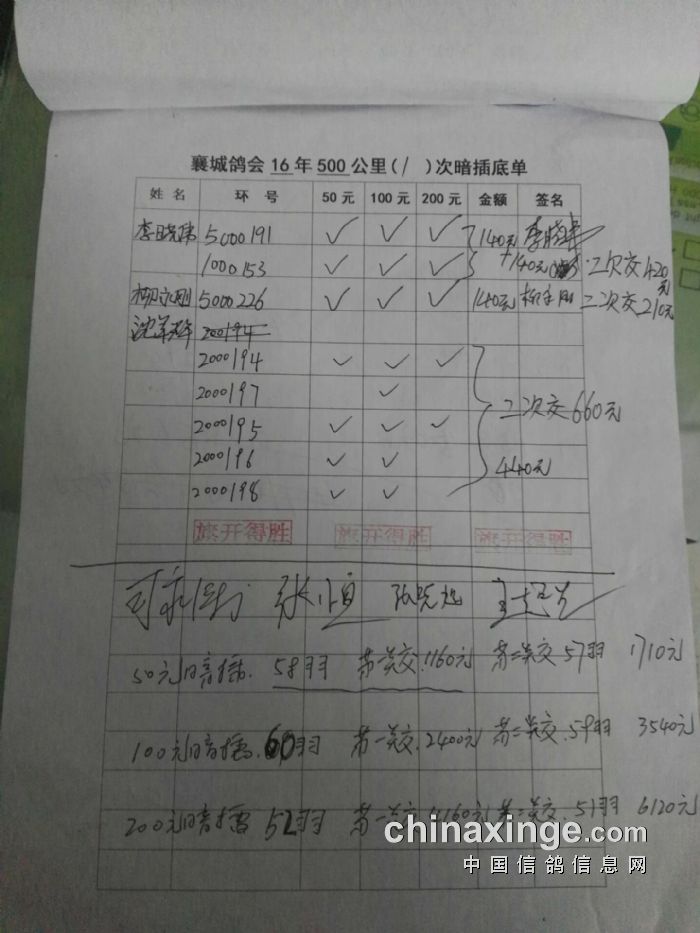 襄城鸽会 16 年 500 公里( / )次暗插底单
姓 名 环 号 50 元 100 元 200 元 金额 签名
李晓伟 5000191 ✓ ✓ ✓ 140元
1000153 ✓ ✓ ✓ +140元 二次交420元
5000226 ✓ ✓ ✓ 140元 二次交210元
200194
2000194 ✓ ✓ ✓
2000197 ✓
二次交660元
2000195 ✓ ✓ ✓
2000196 ✓ ✓ 440元
2000198 ✓ ✓
旗开得胜 旗开得胜 旗开得胜
50元暗插 58羽 第一次交 1160元 第二次交 57羽 1710元
100元暗插 60羽 第一次交 2400元 第二次交 59羽 3540元
200元暗插 52羽 第一次交 4160元 第二次交 51羽 6120元
chinaxinge.com
中国信鸽信息网